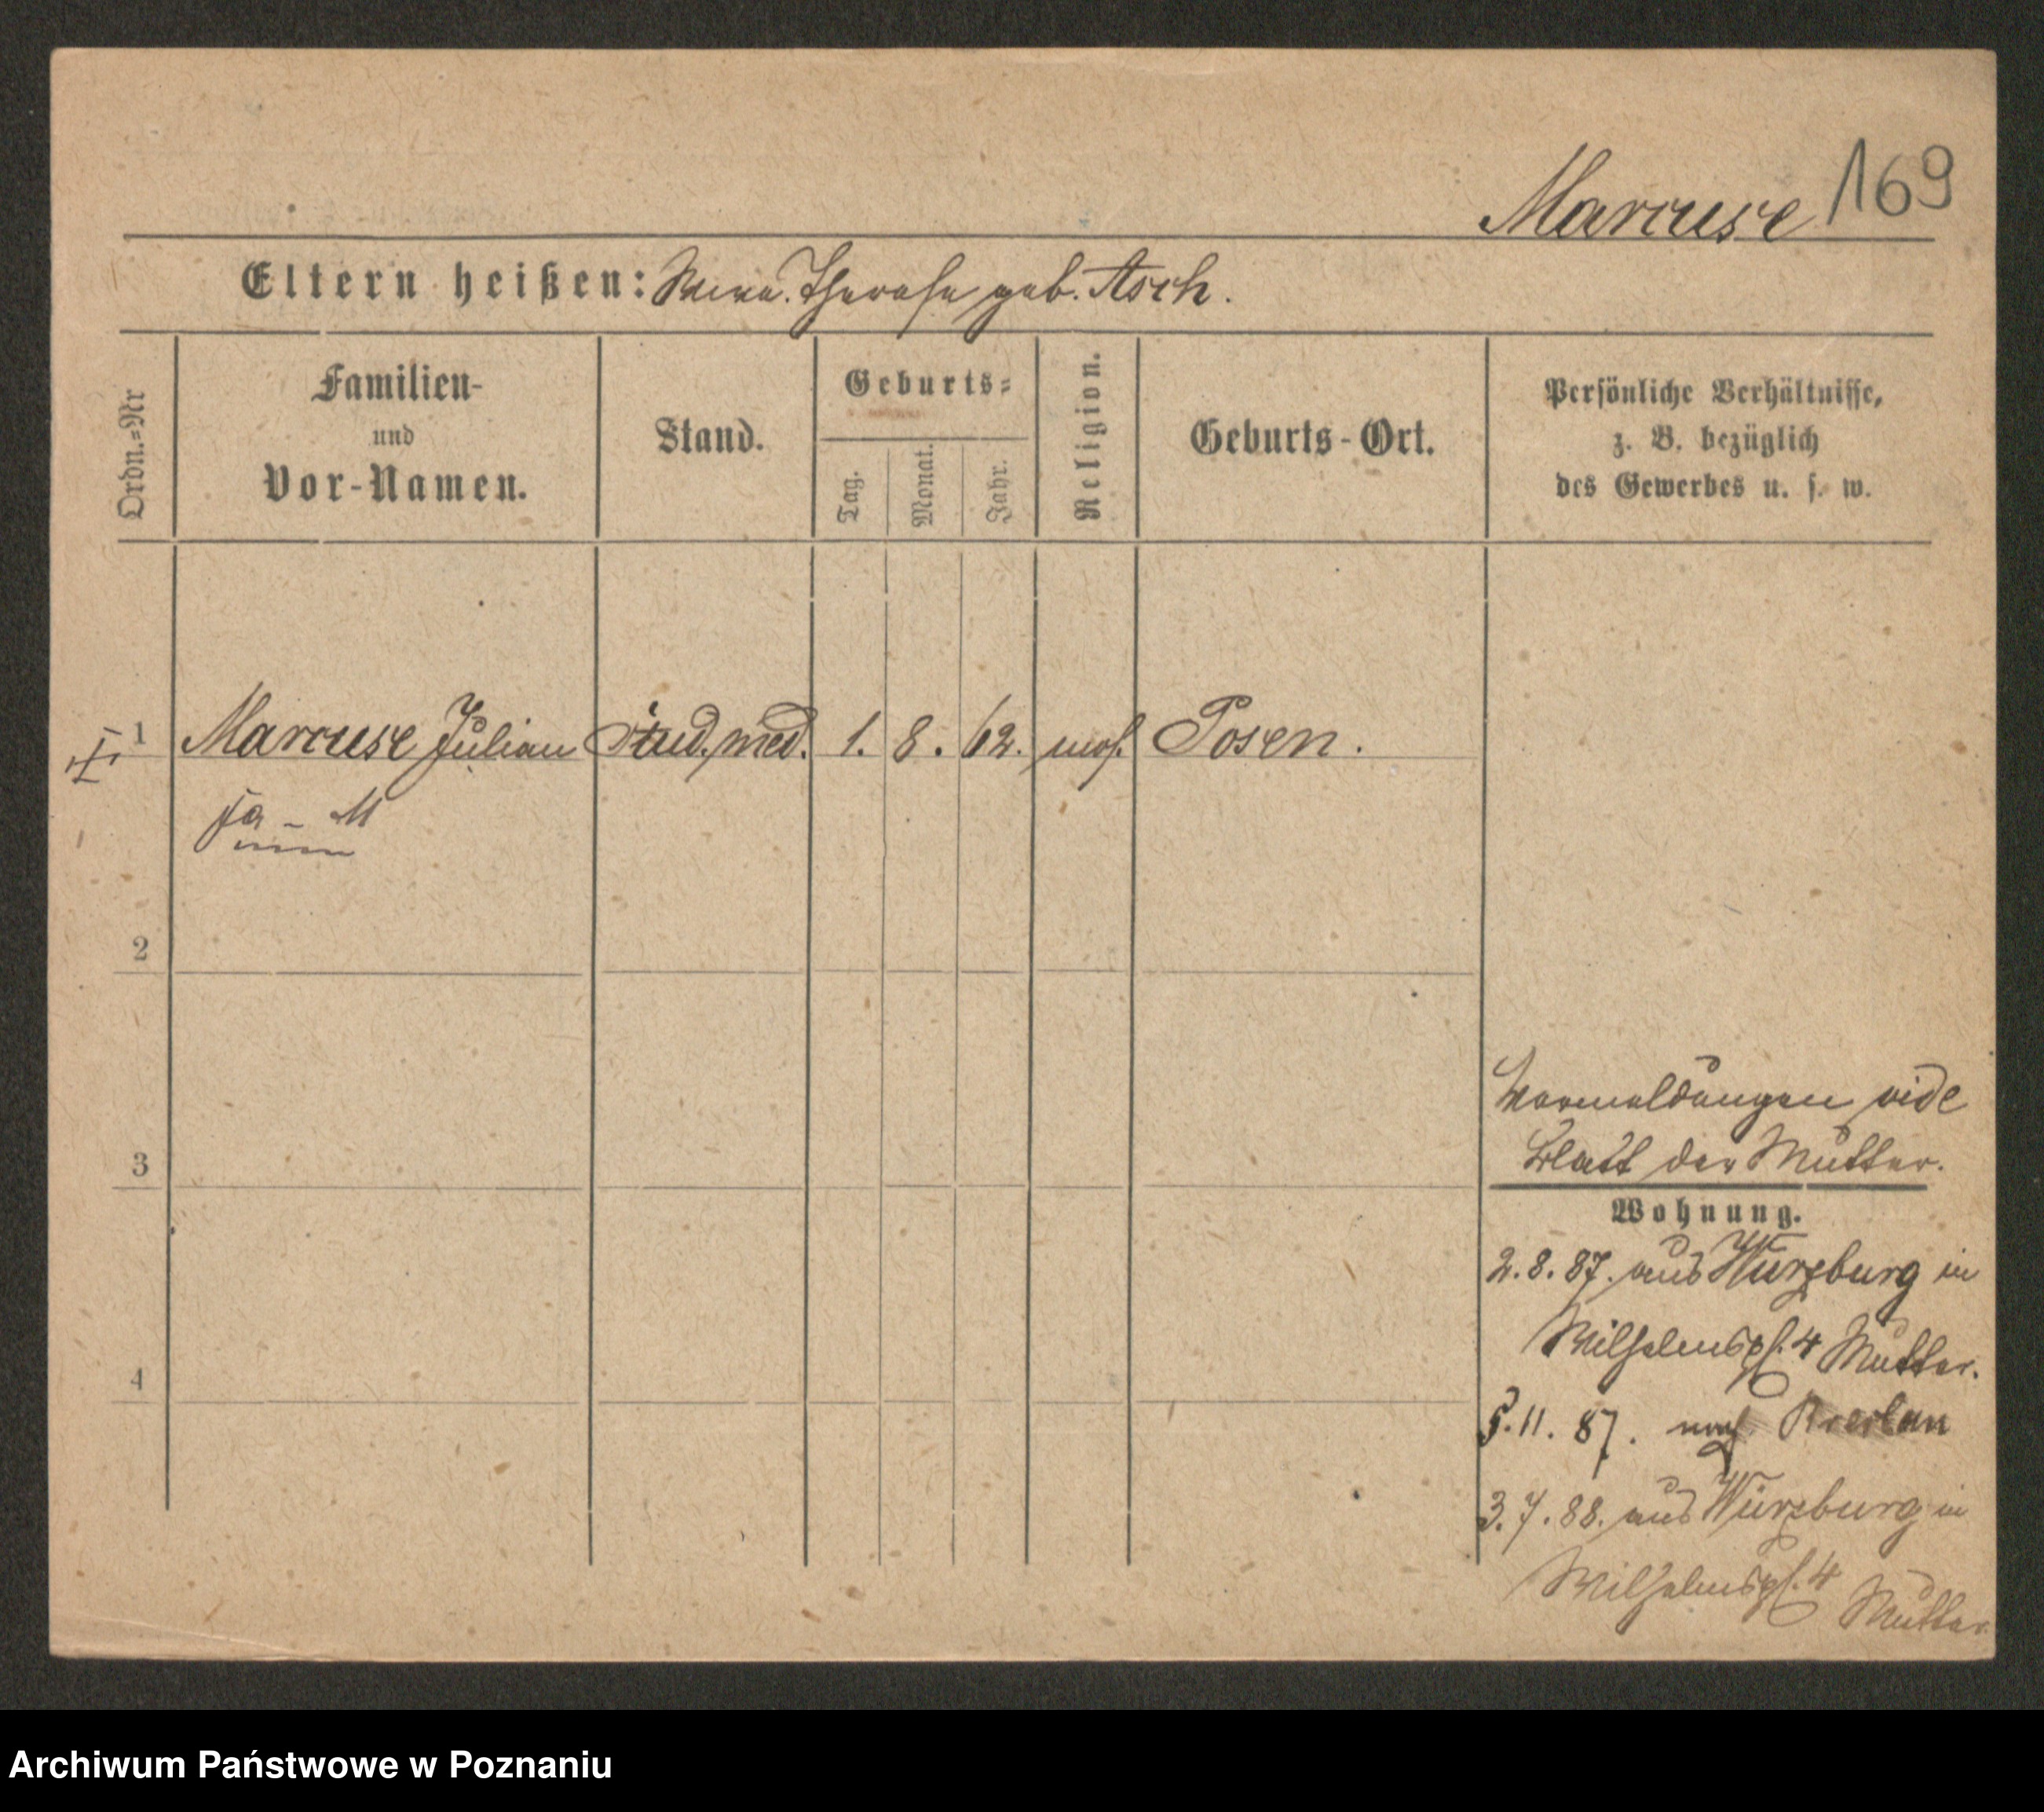 Marcuse 169
Eltern heißen: Wwe. Therese geb. Asch.
Ordn.=Nr
Familien-
und
Vor-Namen.
Stand.
Geburts=
Tag.
Monat.
Jahr.
Religion.
Geburts-Ort.
Persönliche Verhältnisse,
z. B. bezüglich
des Gewerbes u. s. w.
1 Marcuse Julian Stud. med. 1. 8. 62. mos. Posen.
2
3
4
Vormeldungen vide
Blatt der Mutter.
Wohnung.
2. 8. 87. aus Würzburg in
Wilhelmspl. 4 Mutter.
5. 11. 87. nach Breslau
3. 7. 88. aus Würzburg in
Wilhelmspl. 4
Mutter
Archiwum Państwowe w Poznaniu